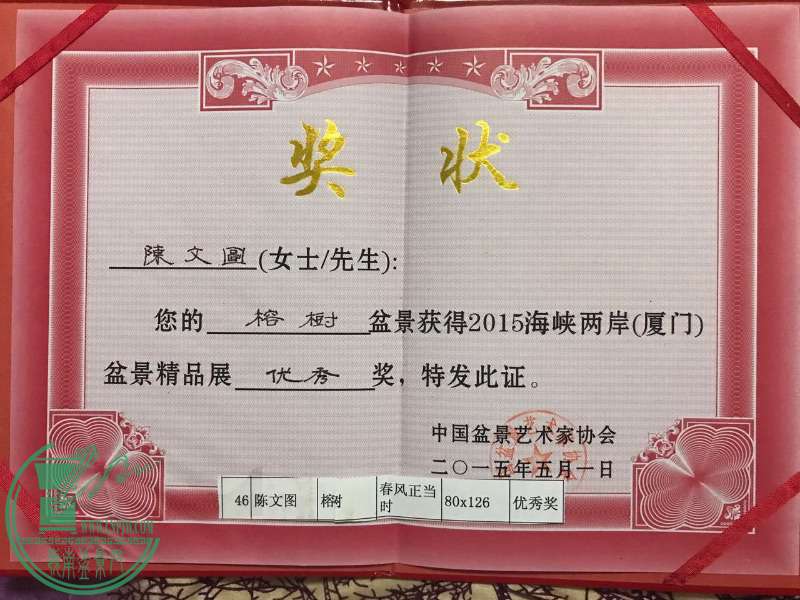 奖 状
陳文圖(女士/先生):
您的 榕樹 盆景获得2015海峡两岸(厦门)
盆景精品展 优秀 奖，特发此证。
中国盆景艺术家协会
二〇一五年五月一日
46 陈文图 榕树 春风正当时 80x126 优秀奖